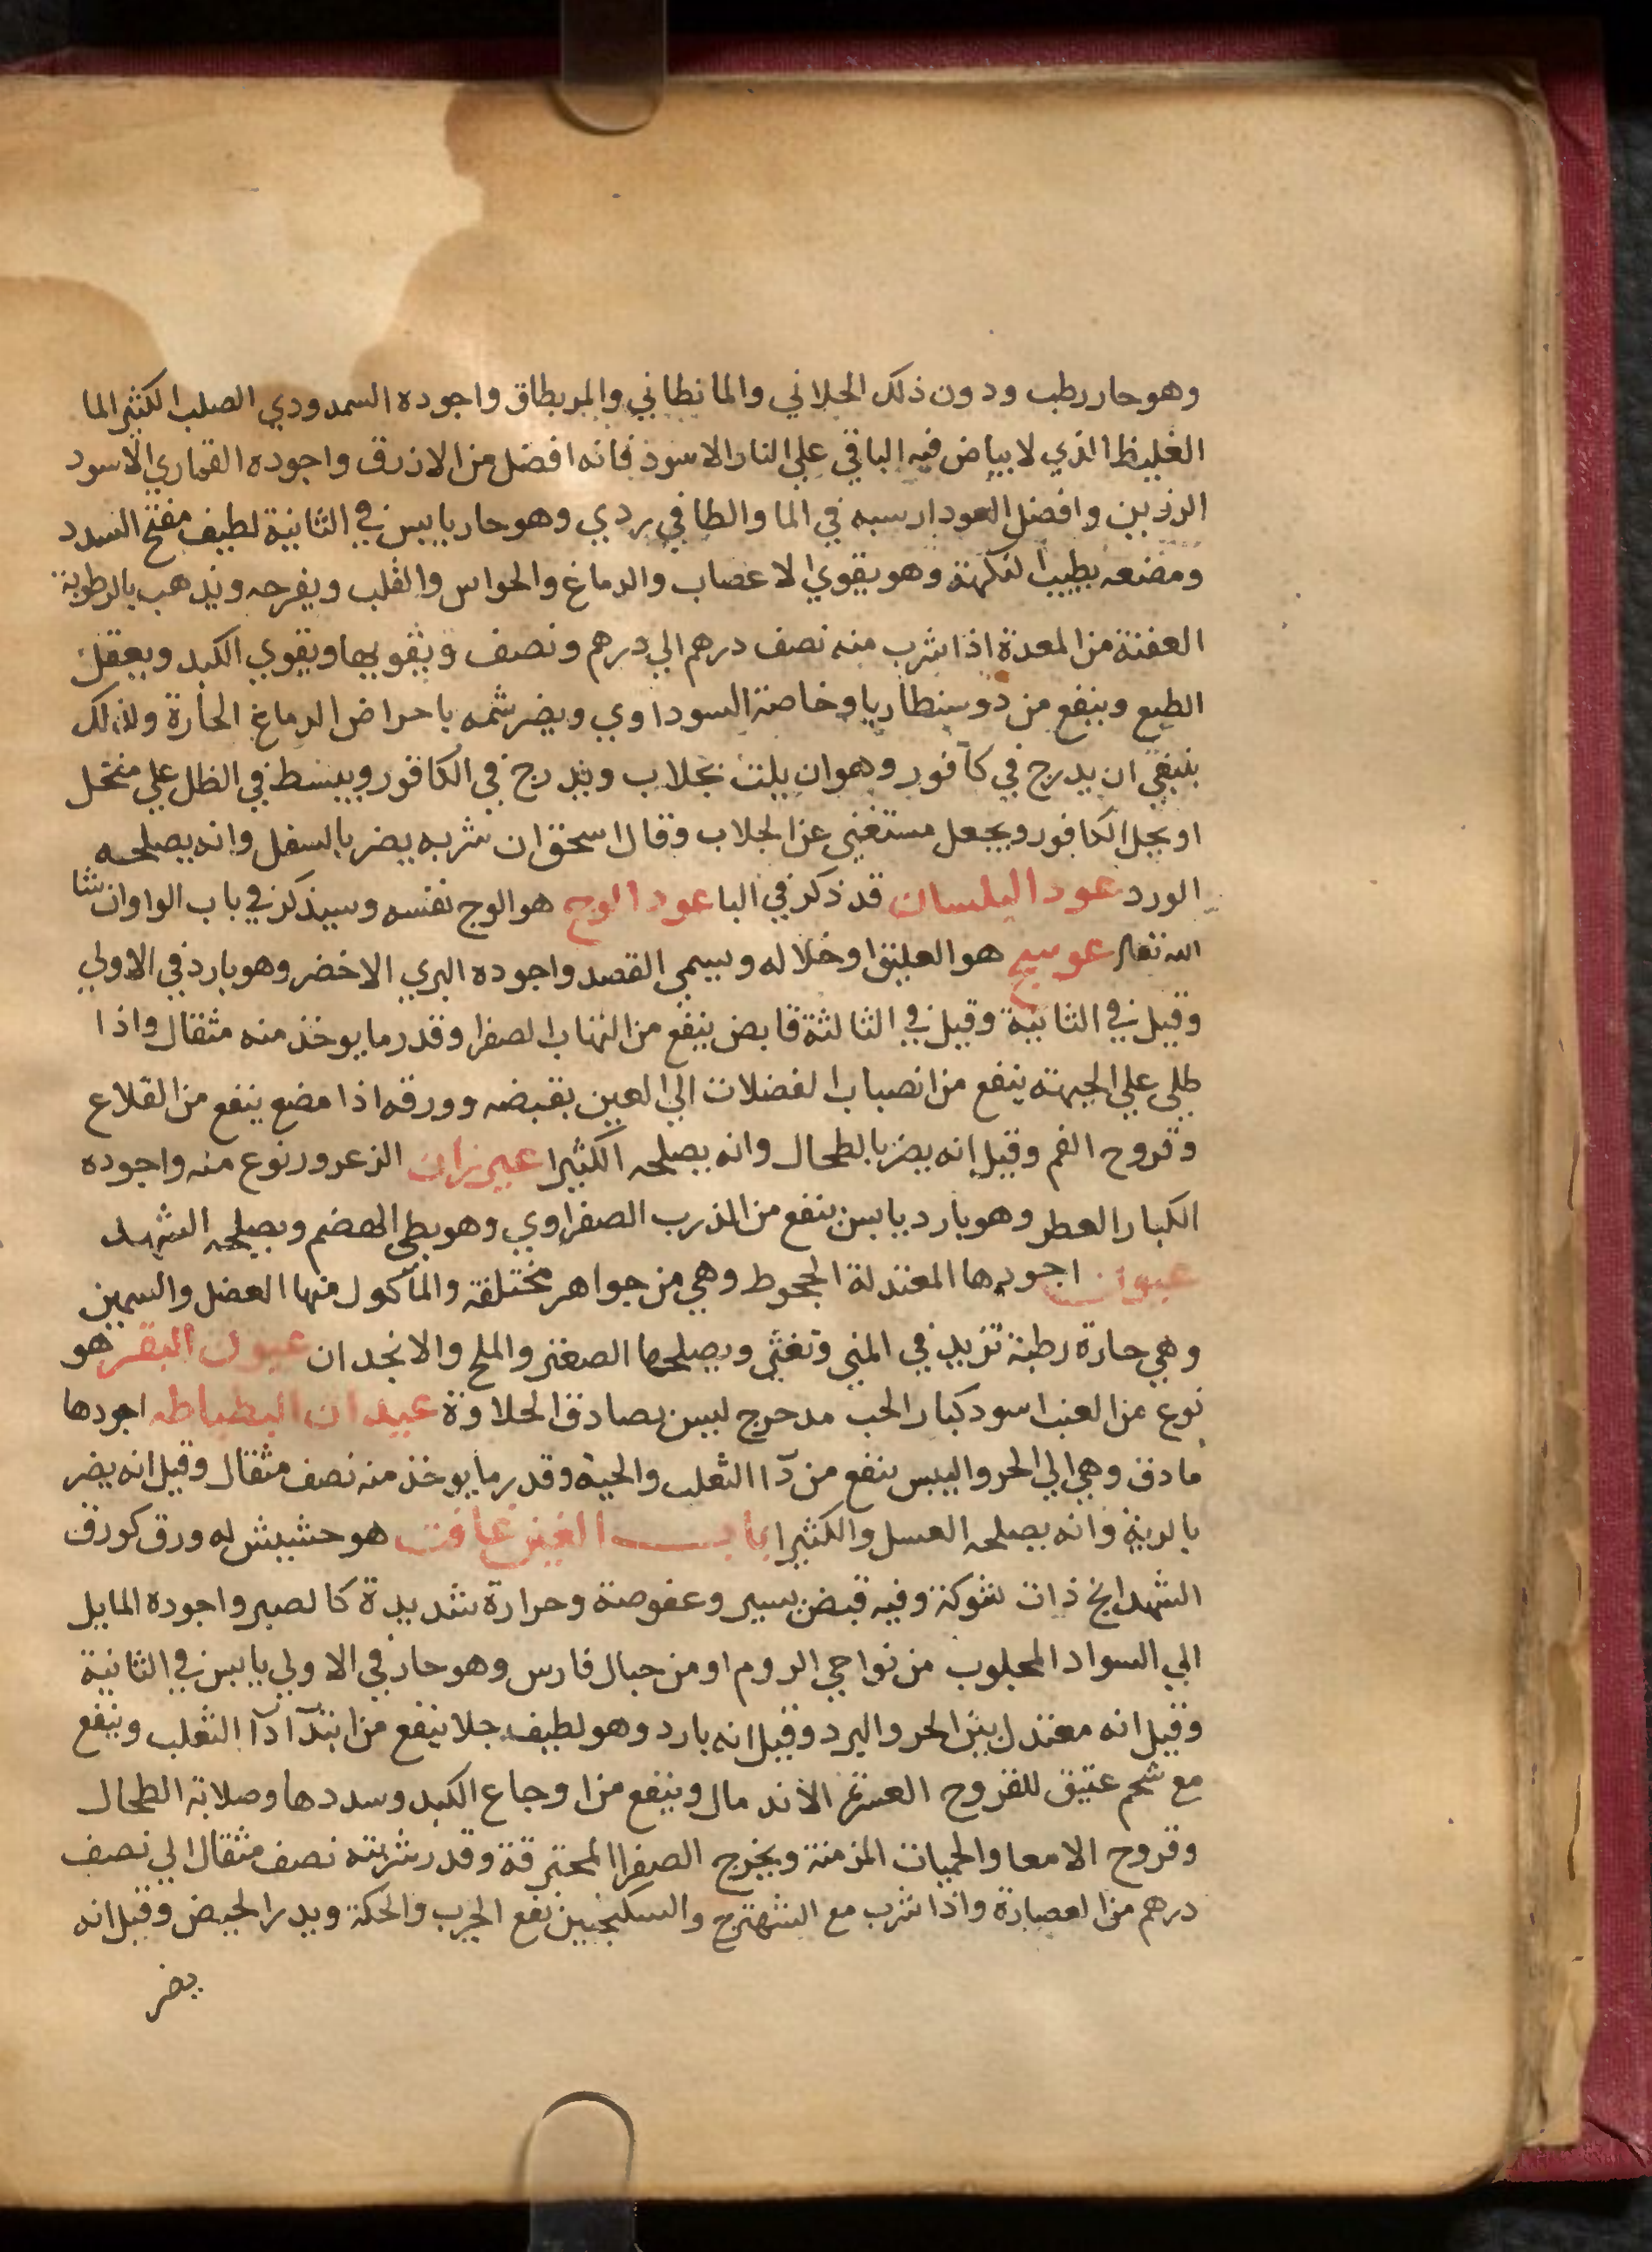 وهو حار رطب ودون ذلك الجلاني والمانطاني والمربطاق واجوده السمدودي الصلب الكثير الما
الغليظ الذي لا بياض فيه الباقي علي النار الاسود فانه افضل من الازرق واجوده القماري الاسود
الرزين وافضل العود ارسبه في الما والطافي ردي وهو حار يابس في الثانية لطيف مفتح السدد
ومضغه يطيب النكهة وهو يقوي الاعصاب والدماغ والحواس والقلب ويفرحه ويذهب بالرطوبة
العفنة من المعدة اذا شرب منه نصف درهم الي درهم ونصف ويقويها ويقوي الكبد ويعقل
الطبع وينفع من دوسنطاريا وخاصة السوداوي ويضر شمه بامراض الدماغ الحارة ولذلك
ينبغي ان يدرج في كافور وهو ان يلت بجلاب ويدرج في الكافور ويبسط في الظل علي منخل
او يحل الكافور ويجعل مستغني عن الجلاب وقال اسحق ان شربه يضر بالسفل وانه يصلحه
الورد عود البلسان قد ذكر في البا عود الوج هو الوج نفسه وسيذكر في باب الواو ان شا
الله تعالي عوسج هو العليق او خلاله ويسمي القصد واجوده البري الاخضر وهو بارد في الاولي
وقيل في الثانية وقيل في الثالثة قابض ينفع من التهاب الصفرا وقدر ما يوخذ منه مثقال واذا
طلي علي الجبهة ينفع من انصباب الفضلات الي العين بقبضه وورقه اذا مضغ ينفع من القلاع
وقروح الفم وقيل انه يضر بالطحال وانه يصلحه الكثيرا عيزران الزعرور نوع منه واجوده
الكبار العطر وهو بارد يابس ينفع من الذرب الصفراوي وهو بطي الهضم ويصلحه الشهد
عيون اجودها المعتدلة الجحوظ وهي من جواهر مختلفة والمأكول منها العضل والسمين
وهي حارة رطبة تزيد في المني وتغثي ويصلحها الصعتر والملح والانجدان عيون البقر هو
نوع من العنب اسود كبار الحب مدحرج ليس بصادق الحلاوة عيدان البطباطه اجودها
ما دق وهي الي الحر واليبس ينفع من دآ الثعلب والحية وقدر ما يوخذ منه نصف مثقال وقيل انه يضر
بالرية وانه يصلحه العسل والكثيرا باب الغين غافت هو حشيش له ورق كورق
الشهدانج ذات شوكة وفيه قبض يسير وعفوصة وحرارة شديدة كالصبر واجوده المايل
الي السواد المجلوب من نواحي الروم او من جبال فارس وهو حار في الاولي يابس في الثانية
وقيل انه معتدل بين الحر والبرد وقيل انه بارد وهو لطيف جلا ينفع من ابتدآ دآ الثعلب وينفع
مع شحم عتيق للقروح العسرة الاندمال وينفع من اوجاع الكبد وسددها وصلابة الطحال
وقروح الامعا والحميات المزمنة ويخرج الصفرا المحترقة وقدر شربته نصف مثقال الي نصف
درهم من العصارة واذا شرب مع الشهترج والسكنجبين نفع الجرب والحكة ويدر الحيض وقيل انه
يضر